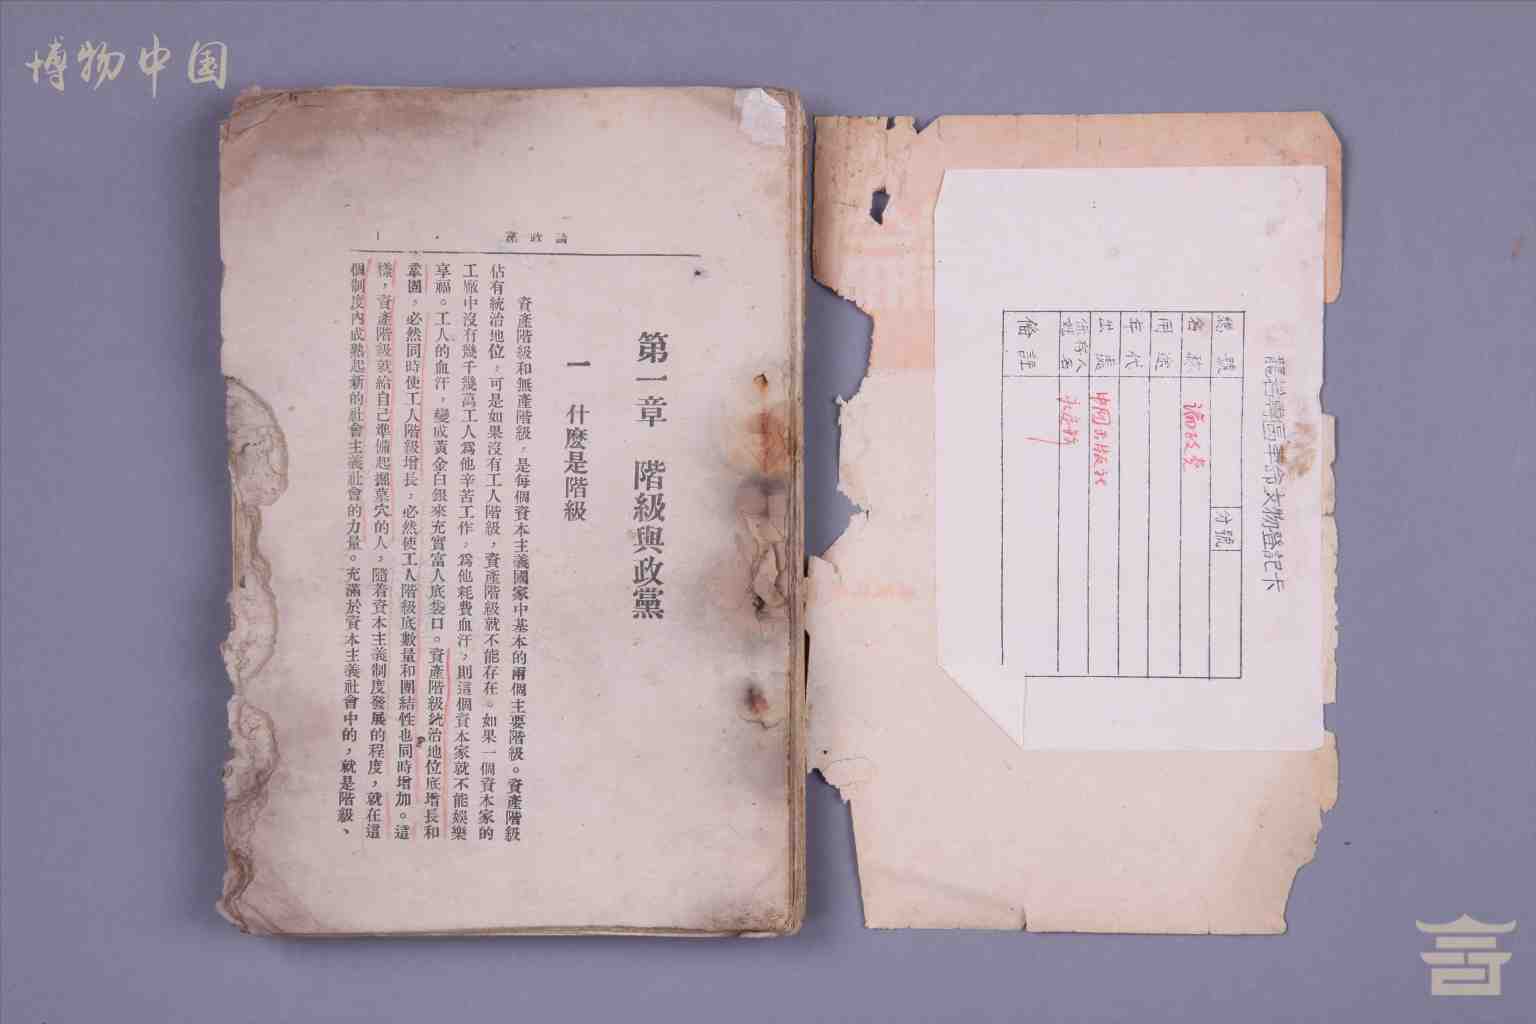 博物中国
論政黨
第一章　階級與政黨
一　什麽是階級
資產階級和無產階級，是每個資本主義國家中基本的兩個主要階級。資產階級
佔有統治地位，可是如果沒有工人階級，資產階級就不能存在。如果一個資本家的
工廠中沒有幾千幾萬工人爲他辛苦工作，爲他耗費血汗，則這個資本家就不能娛樂
享福。工人的血汗，變成黃金白銀來充實富人底袋口。資產階級統治地位底增長和
鞏固，必然同時使工人階級增長，必然使工人階級底數量和團結性也同時增加。這
樣，資產階級就給自己準備起掘墓穴的人，隨着資本主義制度發展的程度，就在這
個制度內成熟起新的社會主義社會的力量。充滿於資本主義社會中的，就是階級、
龍岩專區革命文物登記卡
總號　分號
名稱　論政黨
用途
年代
出處　中國出版社
保存人　永定縣
備註